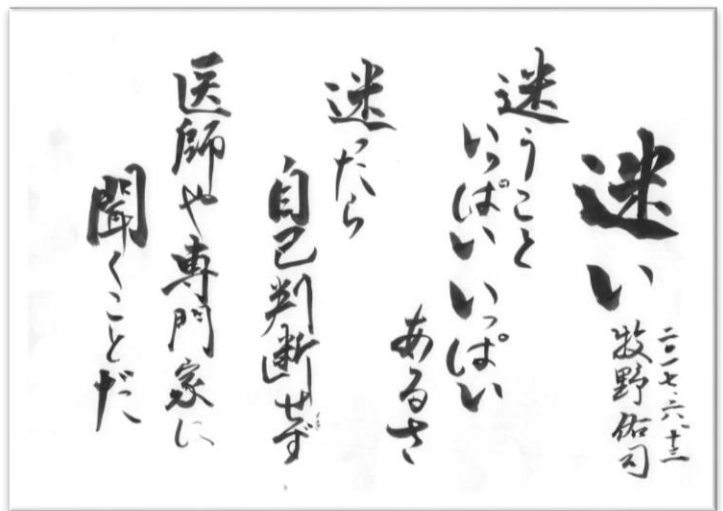 迷い
二〇一七、六、十三
牧野佑司
迷うこと
いっぱいいっぱい
あるさ
迷ったら
自己判断せず
医師や専門家に
聞くことだ